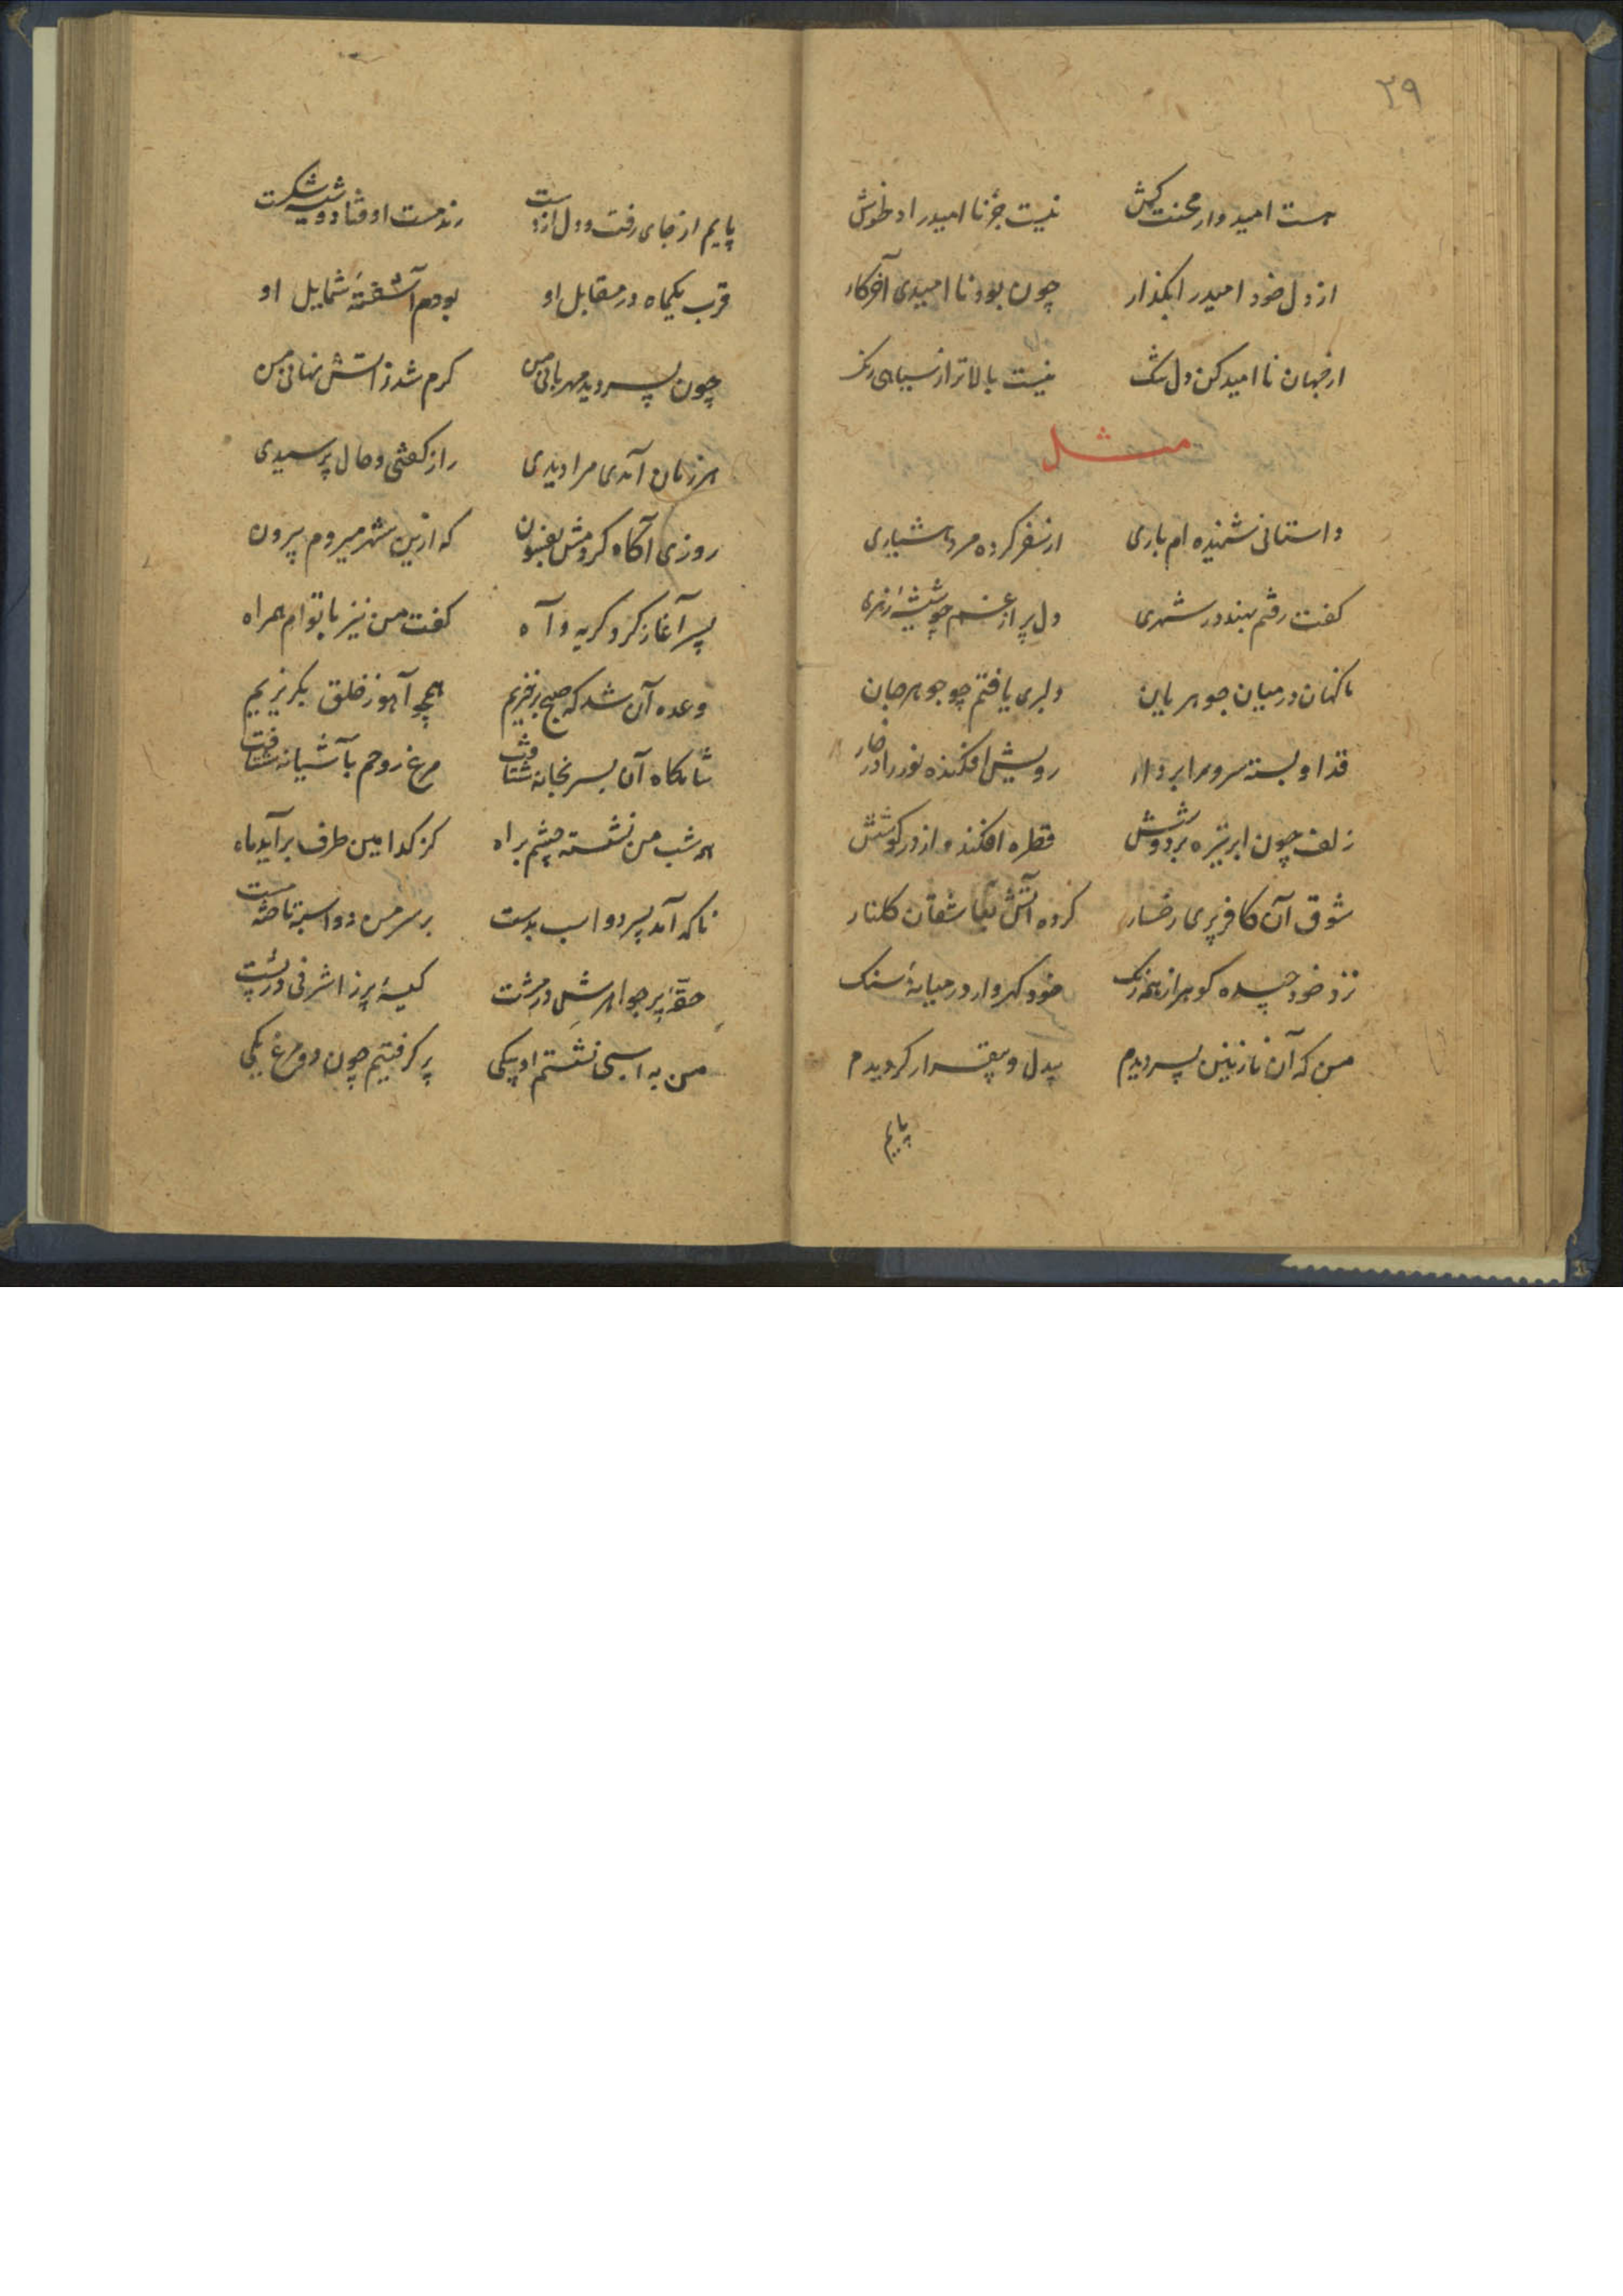 ۲۹
هست امیدوار محنت کش نیست جز ناامید را دلخوش
از دل خود امید را بگذار چون بود ناامیدی آخر کار
از جهان ناامید کن دل تنگ نیست بالاتر از سیاهی رنگ
مثل
داستانی شنیده ام باری از سفر کرده مرد هشیاری
کفت رفتم بهند در شهری دل پر از غم چو شیشهٔ زهری
ناکهان در میان جوهریان دلبری یافتم چو جوهر جان
قد او بسته سرو را بر دار رویش افکنده نور را در نار
زلف چون ابر تیره بر دوشش قطره افکنده از در کوشش
شوق آن کافر پری رخسار کرده آتش بعاشقان کلنار
نزد خود چیده کوهر از همه رنک خود کهروار در میانهٔ سنک
من که آن نازنین پسر دیدم بیدل و بیقرار کردیدم
پایم
پایم از جای رفت و دل از دست رند مست اوفتاد و شیشه شکست
قرب یکماه در مقابل او بودم آشفتهٔ شمایل او
چون پسر دید مهربانی من کرم شد ز آتش نهانی من
هر زمان آمدی مرا دیدی راز کفتی و حال پرسیدی
روزی آکاه کردمش بفسون که ازین شهر میروم بیرون
پسر آغاز کرد کریه و آه کفت من نیز با توام همراه
وعده آن شد که صبح برخیزیم همچو آهو ز خلق بکریزیم
شامکاه آن پسر بخانه شتافت مرغ روحم بآشیانه شتافت
همه شب من نشسته چشم براه کز کدامین طرف برآید ماه
ناکه آمد پسر دو اسب بدست بر سر من دو اسبه تاخته مست
حقهٔ پر جواهرش در مشت کیسهٔ پر ز اشرفی در پشت
من به اسبی نشستم او بیکی پر کرفتیم چون دو مرغ یکی